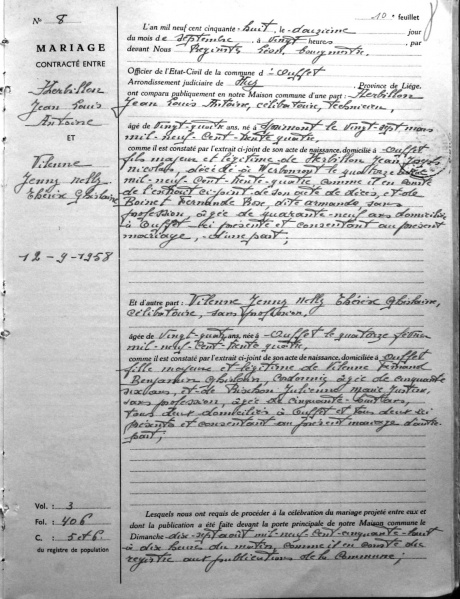 N° 8
10e feuillet
MARIAGE
CONTRACTÉ ENTRE
Herbillon
Jean Louis
Antoine
ET
Vilenne
Jenny Nelly
Thérèse Ghislaine
12-9-1958
Vol. : 3
Fol. : 406
C. : 5 et 6.
du registre de population
L'an mil neuf cent cinquante-huit, le douzième jour
du mois de septembre, à vingt heures, par
devant Nous Léon, bourgmestre,
Officier de l'Etat-Civil de la commune d' Ouffet
Arrondissement judiciaire de Huy, Province de Liège,
ont comparu publiquement en notre Maison commune d'une part : Herbillon
Jean Louis Antoine, célibataire, technicien,
âgé de vingt-quatre ans, né à Sprimont le vingt-sept mars
mil-neuf-cent-trente-quatre,
comme il est constaté par l'extrait ci-joint de son acte de naissance, domicilié à Ouffet
fils majeur et légitime de Herbillon Jean
Nicolas, décédé à Werbomont le quatorze
mil-neuf-cent- comme il en conste
de l'extrait ci-joint de son acte de décès, et de
Fernande Rose, dite Armande, sans
profession, âgée de quarante-neuf ans domiciliée
à Ouffet ici présente et consentant au présent
mariage, d'une part;
Et d'autre part : Vilenne Jenny Nelly Thérèse Ghislaine,
célibataire, sans profession,
âgée de vingt-quatre ans, née à Ouffet le quatorze février
mil-neuf-cent-trente-quatre,
comme il est constaté par l'extrait ci-joint de son acte de naissance, domiciliée à Ouffet
fille majeure et légitime de Vilenne Fernand
Benjamin Ghislain, âgé de cinquante
six ans, et de Julienne Marie
sans profession, âgée de cinquante-huit ans,
tous deux domiciliés à Ouffet et tous deux ici
présents et consentant au présent mariage d'autre
part;
Lesquels nous ont requis de procéder à la célébration du mariage projeté entre eux et
dont la publication a été faite devant la porte principale de notre Maison commune le
Dimanche dix-sept août mil-neuf-cent-cinquante-huit
à dix heures du matin, comme il en conste du
registre aux publications de la Commune;